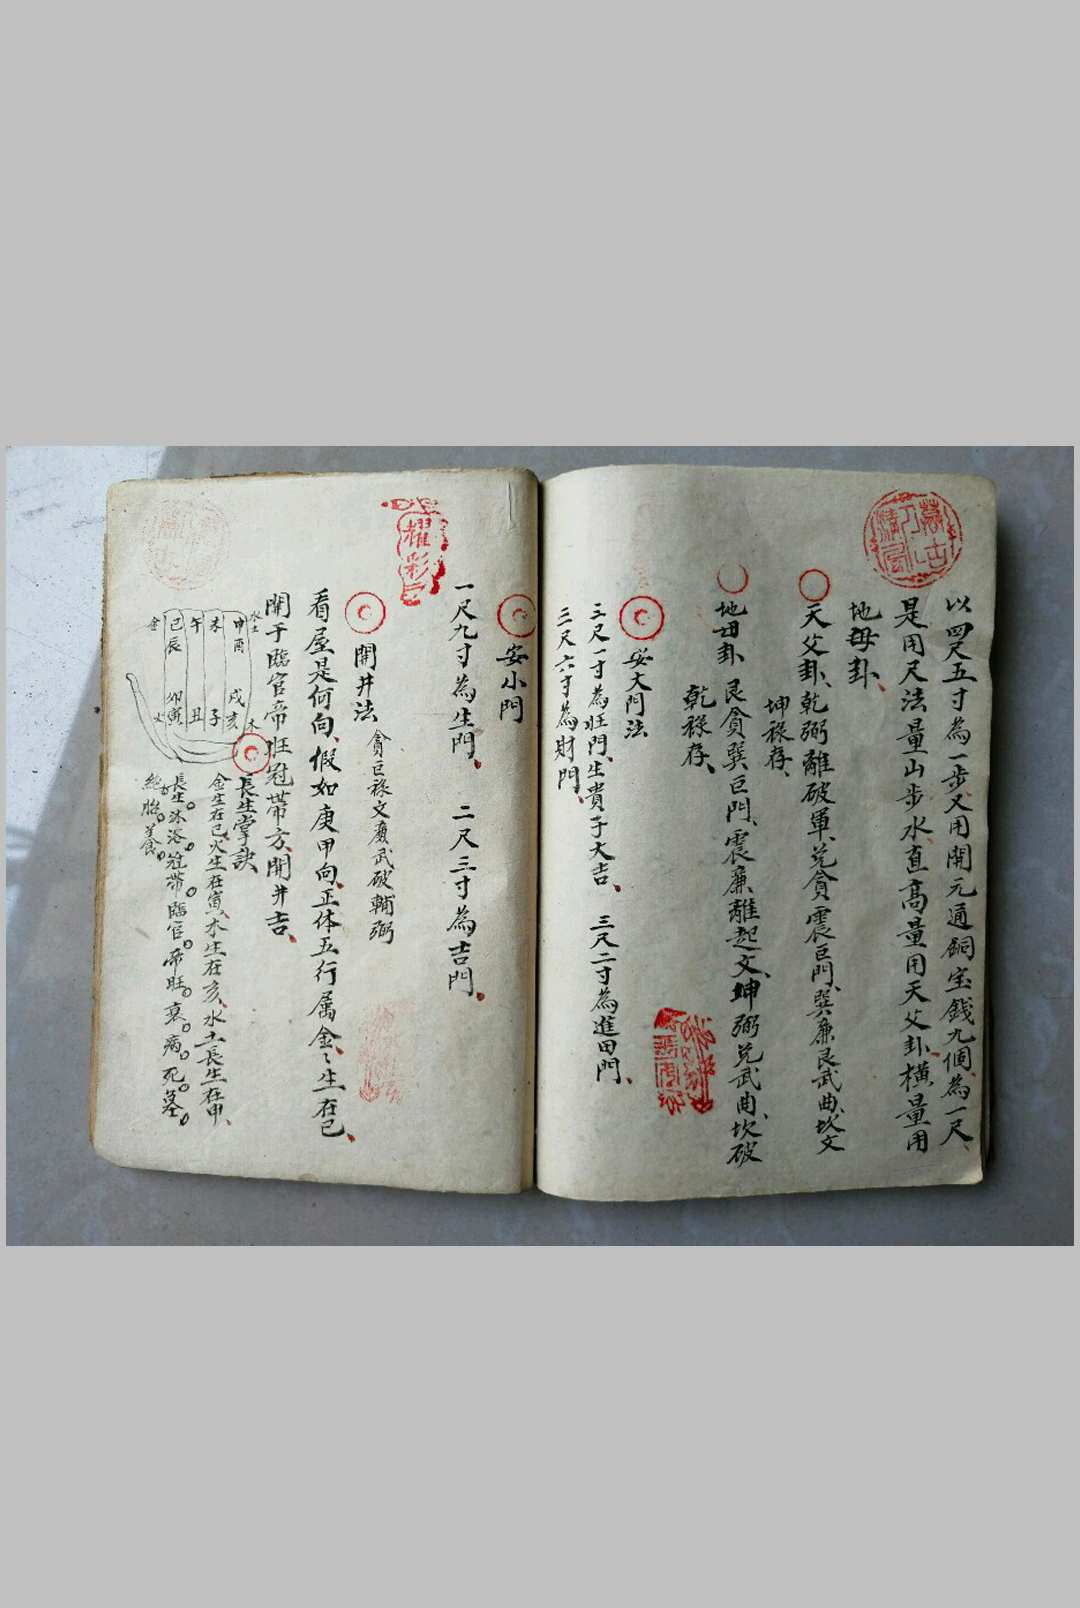 以四尺五寸為一步、又用開元通銅宝錢九個、為一尺、
是用尺法量山步水、直高量用天父卦、橫量用
地母卦、
天父卦、乾弼離破軍、兌貪震巨門、巽廉艮武曲、坎文
坤祿存、
地母卦 艮貪巽巨門、震廉離起文、坤弼兌武曲、坎破
乾祿存、
安大門法
三尺一寸為旺門、生貴子大吉、 三尺二寸為進田門、
三尺六寸為財門、
安小門
一尺九寸為生門、 二尺三寸為吉門、
開井法 貪巨祿文廉武破輔弼
看屋是何向、假如庚甲向、正体五行属金、〻生在巳、
開于臨官帝旺冠帶方、開井吉、
長生掌訣
金生在巳、火生在寅、木生在亥、水土長生在申、
長生。沐浴。冠帶。臨官。帝旺。衰。病。死。墓。
絕。胎。養。
水土
申酉
戌亥
木
未
子
午
丑
巳辰
卯寅
金
火
耀彩